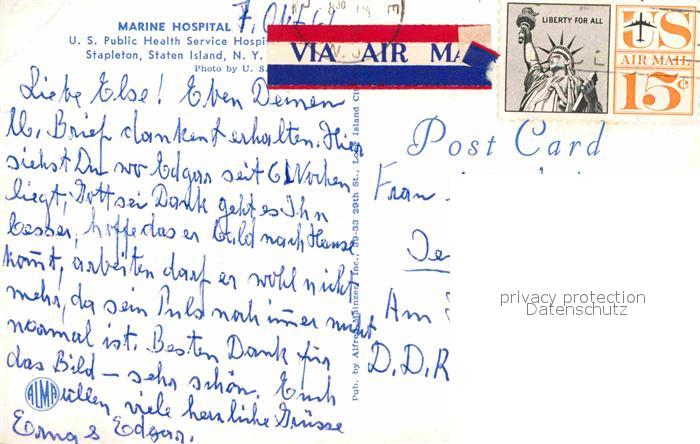 MARINE HOSPITAL 7. Okt. 61
U. S. Public Health Service Hospi
Stapleton, Staten Island, N. Y.
Photo by U. S.
VIA AIR MA
LIBERTY FOR ALL
US
AIR MAIL
15c
Liebe Else! Eben Deinen
lb. Brief dankend erhalten. Hier
siehst Du wo Edgar seit 6 Wochen
liegt, Gott sei Dank geht es Ihn
besser, hoffe das er bald nach Hause
kom̅t, arbeiten darf er wohl nicht
mehr, da sein Puls noch im̅er nicht
normal ist. Besten Dank für
das Bild – sehr schön. Euch
allen viele herzliche Grüsse
Erna & Edgar.
ALMA
Pub. by Alfred Mainzer, Inc., 39-33 29th St., Long Island Cit
Post Card
Frau
Je
Am
D.D.R
privacy protection
Datenschutz